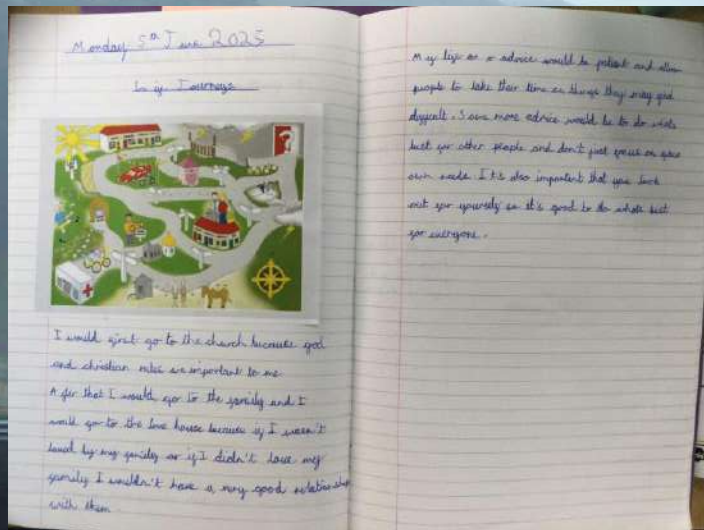 Monday 5th June 2025
Life Journeys
I would first go to the church because god
and christian rules are important to me
After that I would go for to the family and I
would go to the love house because if I wasn't
loved by my family or if I didn't love my
family I wouldn't have a very good relationship
with them.
My life or advice would be patient and allow
people to take their time on things they may find
difficult. Some more advice would be to do whats
best for other people and don't just focus on your
own needs. It's also important that you look
out for yourself so it's good to do whats best
for everyone.